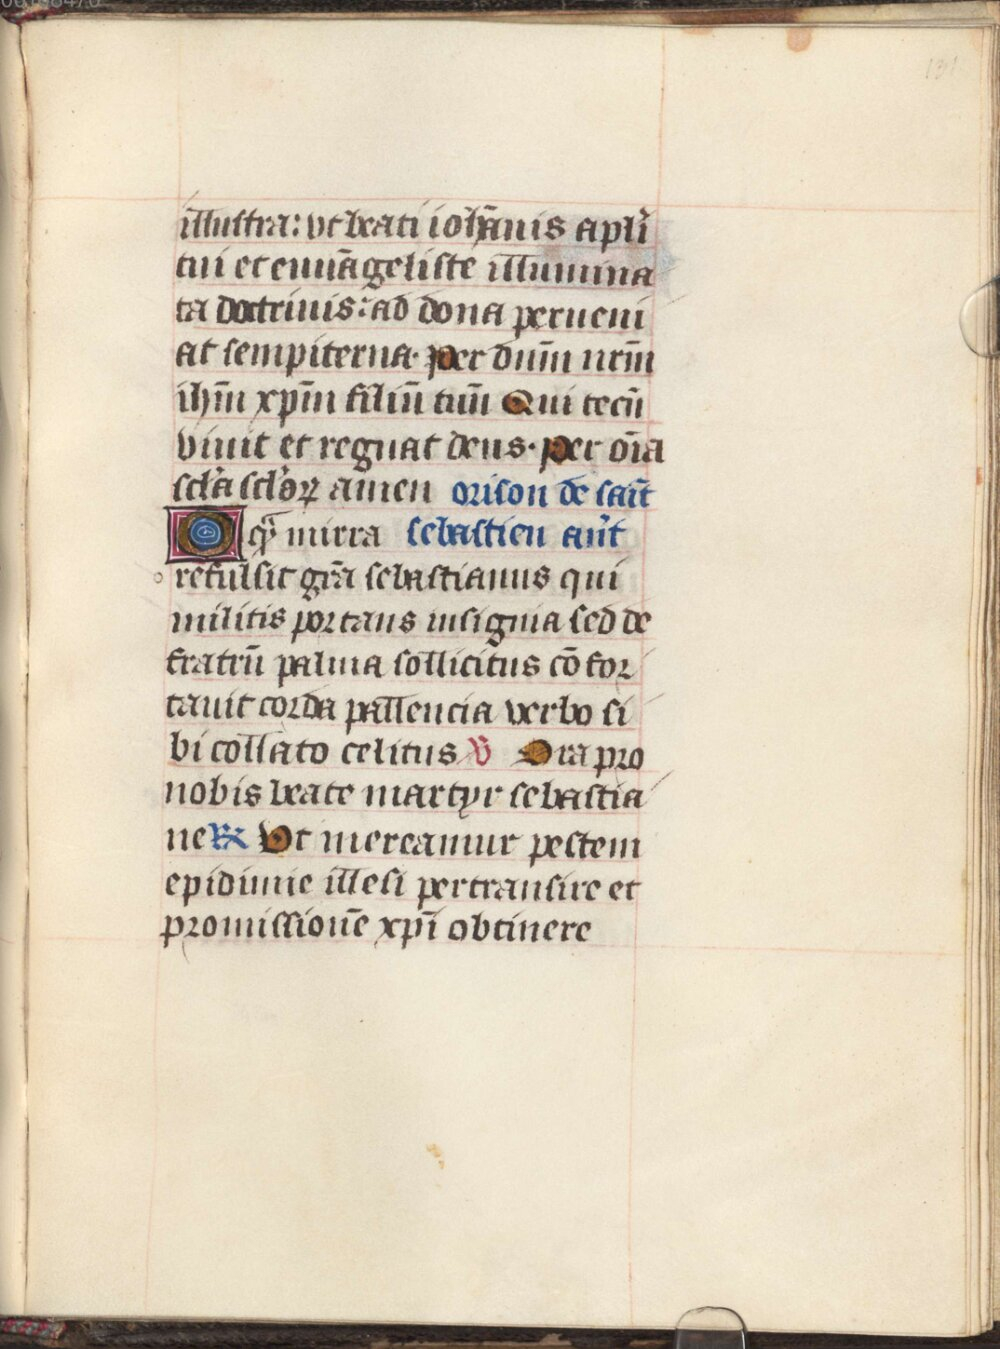 131
illustra: vt beati ioh̄anis apl̄i
tui et euuāgeliste illumina
ta doctrinis: ad dona perueni
at sempiterna· Per dn̄m nr̄m
ihm̄ xpm̄ filiū tuū Qui tecū
viuit et regnat deus· Per oīa
scl̄a scl̄oꝝ amen orison de saīt
O q̄ mirra sebastien ant̄
refulsit gr̄a sebastianus qui
militis portans insignia sed de
fratrū palma sollicitus cōfor
tauit corda pallencia verbo si
bi collato celitus ℣ Ora pro
nobis beate martyr sebastia
ne ℟ Vt mereamur pestem
epidimie illesi pertransire et
promissionē xpī obtinere